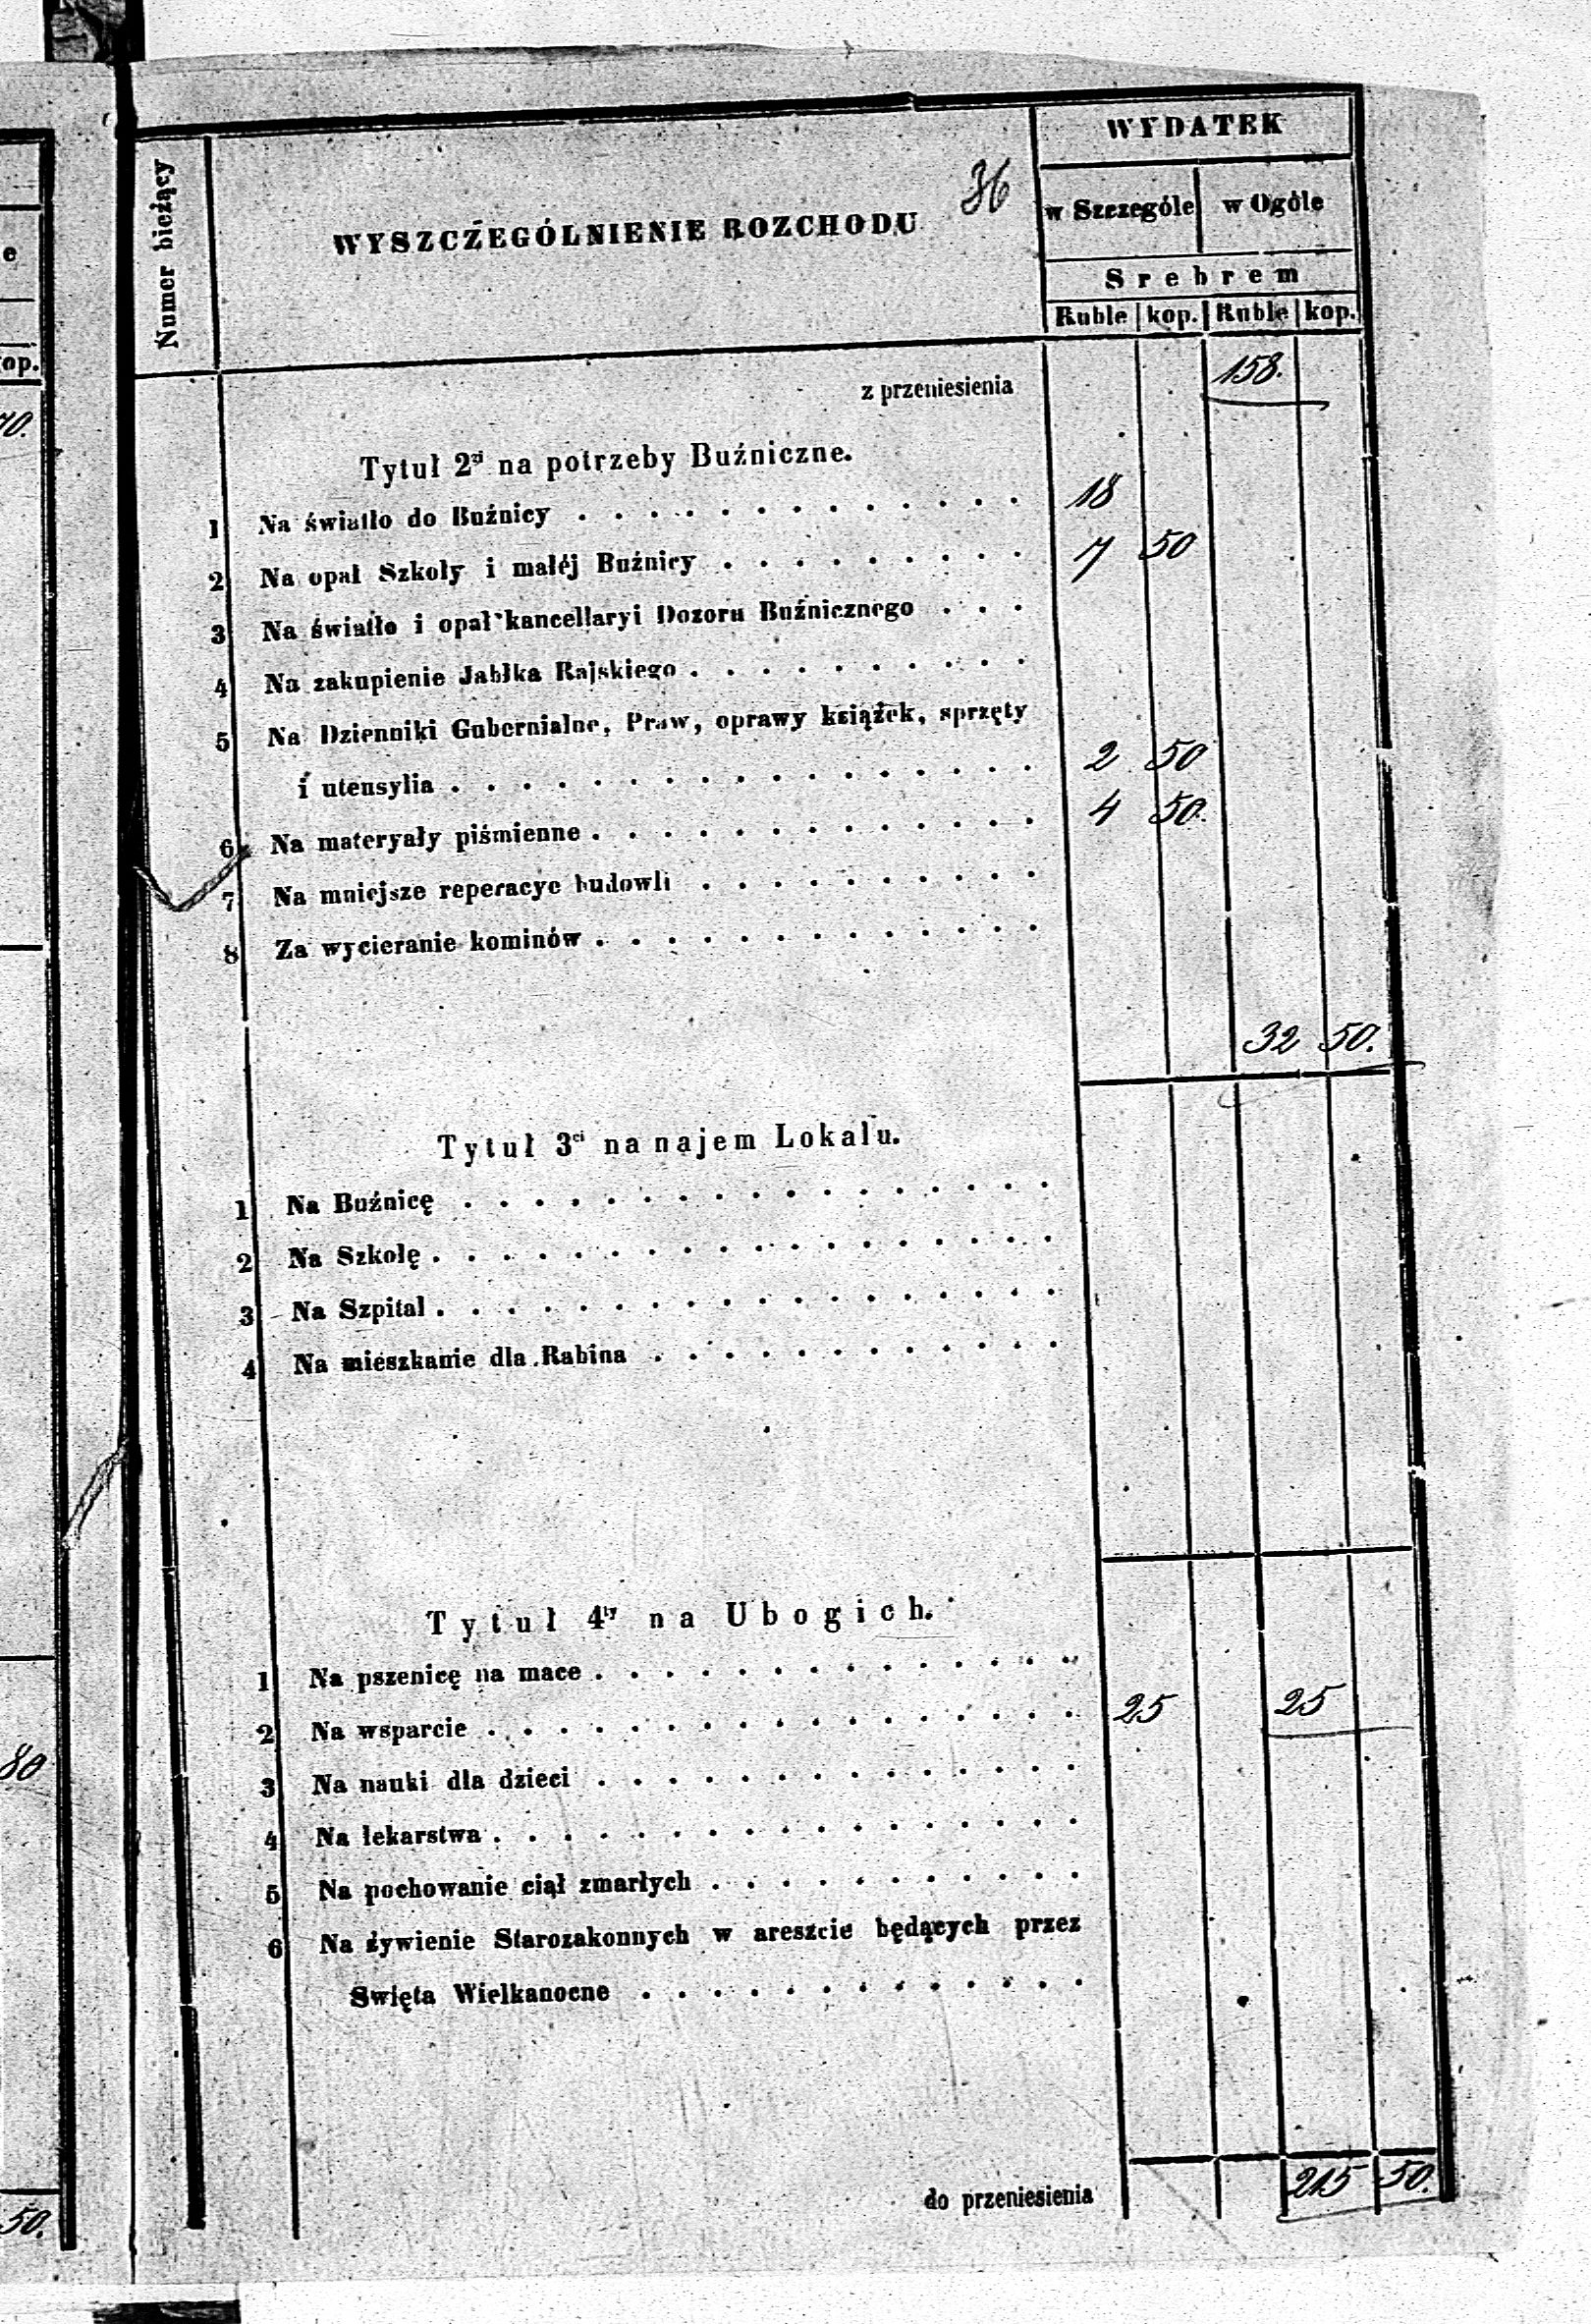 e
op.
70.
80
50.
Numer bieżący
WYSZCZEGÓLNIENIE ROZCHODU
36
WYDATEK
w Szczególe w Ogóle
Srebrem
Ruble kop. Ruble kop.
z przeniesienia 158.
Tytuł 2gi na potrzeby Buźniczne.
1 Na światło do Buźnicy . . . . . . . . . . . . . 18
2 Na opał Szkoły i małéj Buźnicy . . . . . . . . . 7 50
3 Na światło i opał kancellaryi Dozoru Buźnicznego . . .
4 Na zakupienie Jabłka Rajskiego . . . . . . . . . .
5 Na Dzienniki Gubernialne, Praw, oprawy książek, sprzęty
i utensylia . . . . . . . . . . . . . . . . . 2 50
6 Na materyały piśmienne . . . . . . . . . . . . . 4 50.
7 Na mniejsze reperacye budowli . . . . . . . . . .
8 Za wycieranie kominów . . . . . . . . . . . . .
32 50.
Tytuł 3ci na najem Lokalu.
1 Na Buźnicę . . . . . . . . . . . . . . . . .
2 Na Szkołę . . . . . . . . . . . . . . . . . .
3 Na Szpital . . . . . . . . . . . . . . . . . .
4 Na mieszkanie dla Rabina . . . . . . . . . . . .
Tytuł 4ty na Ubogich.
1 Na pszenicę na mace . . . . . . . . . . . . . .
2 Na wsparcie . . . . . . . . . . . . . . . . . 25 25
3 Na nauki dla dzieci . . . . . . . . . . . . . .
4 Na lekarstwa . . . . . . . . . . . . . . . . .
5 Na pochowanie ciął zmarłych . . . . . . . . . . .
6 Na żywienie Starozakonnych w areszcie będących przez
Swięta Wielkanocne . . . . . . . . . . . . .
do przeniesienia 215 50.